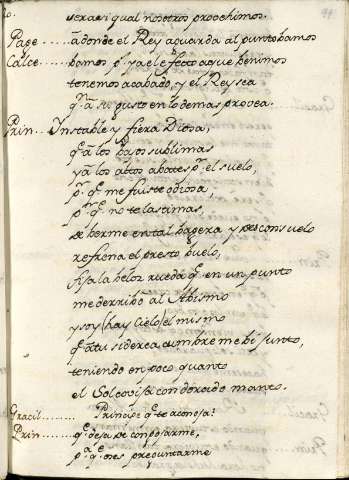 sera si igual nosotros
Page... a donde el Rey aguarda al punto bamos
Calce... bamos pˢ ya el efecto aque benimos
tenemos acabado, y el Rey sea
qᵉ a su gusto en lo demas provea.
Prin.... Ynstable y fiera Diosa,
qᵉ a los bajos sublimas
y a los altos abates pʳ el suelo,
pʳ qᵉ me fuiste odiosa,
pʳ qᵉ no te lastimas,
de berme en tal bageza y desconsuelo
refrena el presto buelo,
fija la beloz rueda qᵉ en un punto
me derribò al Abismo
y soy (hay Cielo) el mismo
qᵉ a tu siderea cumbre me bi junto,
teniendo en poco quanto
el Sol cobija con dorado manto.
Gracil........ Principe qᵉ te acongoja?
Prin......... qᵉ deja de congojarme,
pʳ qᵉ qᵉ es preguntarme